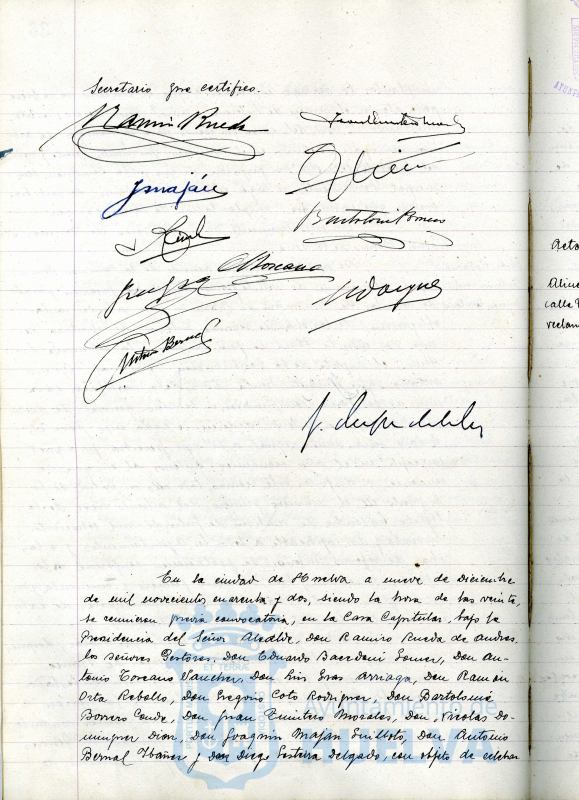 Secretario que certifico.
Ramiro Rueda
J. Maján
Bartolomé Borrero
A. Toscano
Antonio Bernal
Acta
Aline
calle
reclam
En la ciudad de Huelva a nueve de Diciembre
de mil novecientos cuarenta y dos, siendo la hora de las veinte,
se reunieron previa convocatoria, en la Casa Capitular, bajo la
Presidencia del Señor Alcalde, Don Ramiro Rueda de Andres,
los señores Gestores, Don Eduardo Don An-
tonio Toscano Sanchez, Don Luis Gras Arriaga, Don Ramon
Orta Rebollo, Don Gregorio Coto Rodriguez, Don Bartolomé
Borrero Conde, Don Juan Quintero Morales, Don Nicolas Do-
minguez Diaz, Don Joaquin Maján Don Antonio
Bernal Ibañez y Don Diego Delgado, con objeto de celebrar
Ayuntamiento de
HUELVA